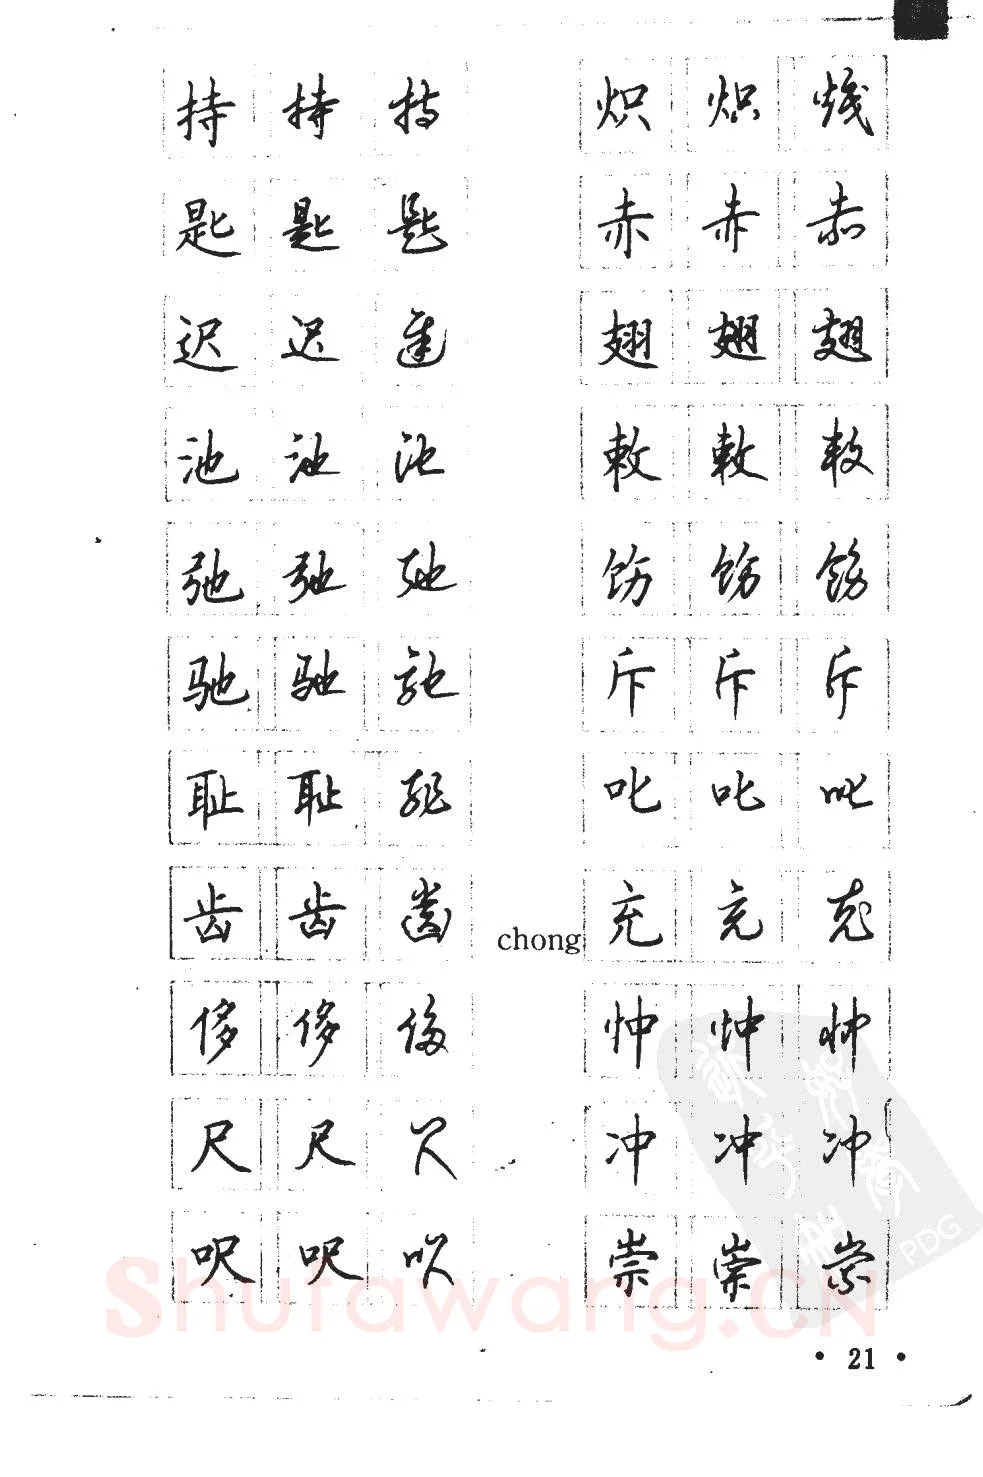 持 持 持
匙 匙 匙
迟 迟 遲
池 池 池
弛 弛 弛
驰 驰 驰
耻 耻 耻
齿 齿 齒
侈 侈 侈
尺 尺 尺
呎 呎 呎
炽 炽 炽
赤 赤 赤
翅 翅 翅
敕 敕 敕
饬 饬 饬
斥 斥 斥
叱 叱 叱
chong 充 充 充
忡 忡 忡
冲 冲 冲
崇 崇 崇
Shufawang.CN
PDG
• 21 •